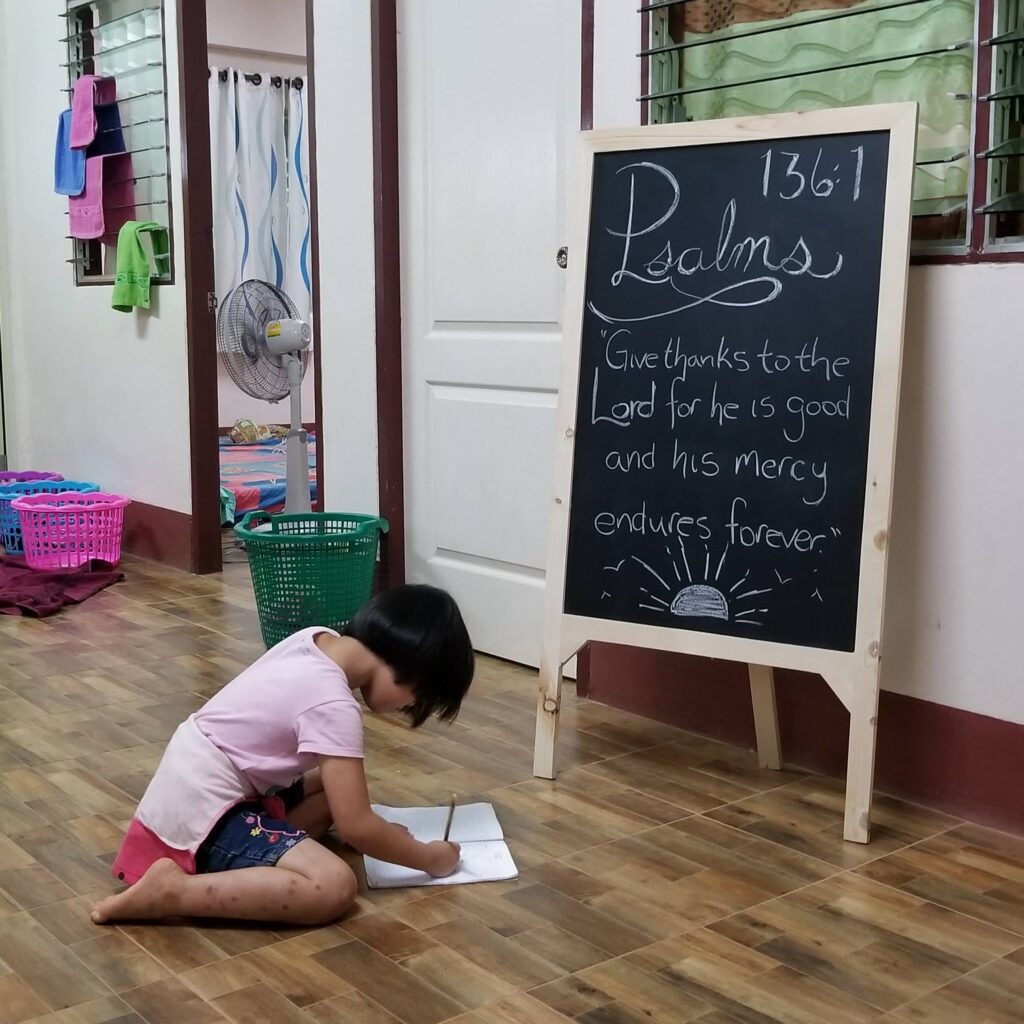 136:1
Psalms
"Give thanks to the
Lord for he is good
and his mercy
endures forever."